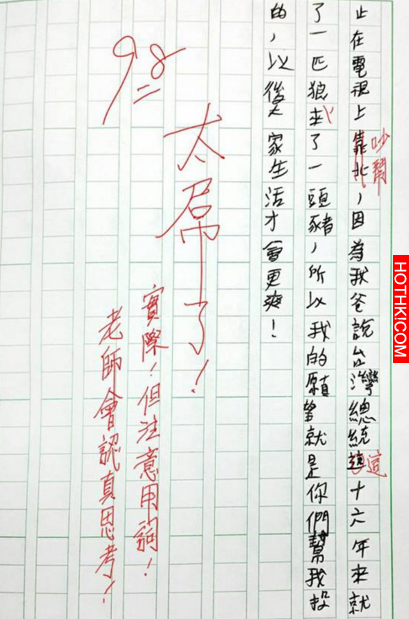 止在電視上靠北，因為我爸說台灣總統這十六年來就
吵鬧
這
了一匹狼了一頭豬，所以我的願望就是你們幫我投
的，以後大家生活才會更爽！
太屌了！
98
實際！但注意用詞！
老師會認真思考！
HOTHKI.COM